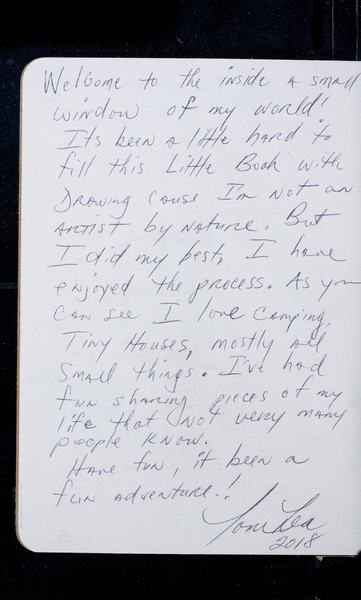 Welcome to the inside a small
window of my world!
Its been a little hard to
fill this Little Book with
Drawing cause I'm not an
Artist by Nature. But
I did my best, I have
enjoyed the process. As you
can see I love camping,
Tiny Houses, mostly all
Small things. I've had
fun sharing pieces of my
life that not very many
people know.
Have fun, it been a
fun adventure.!
Lea
2018